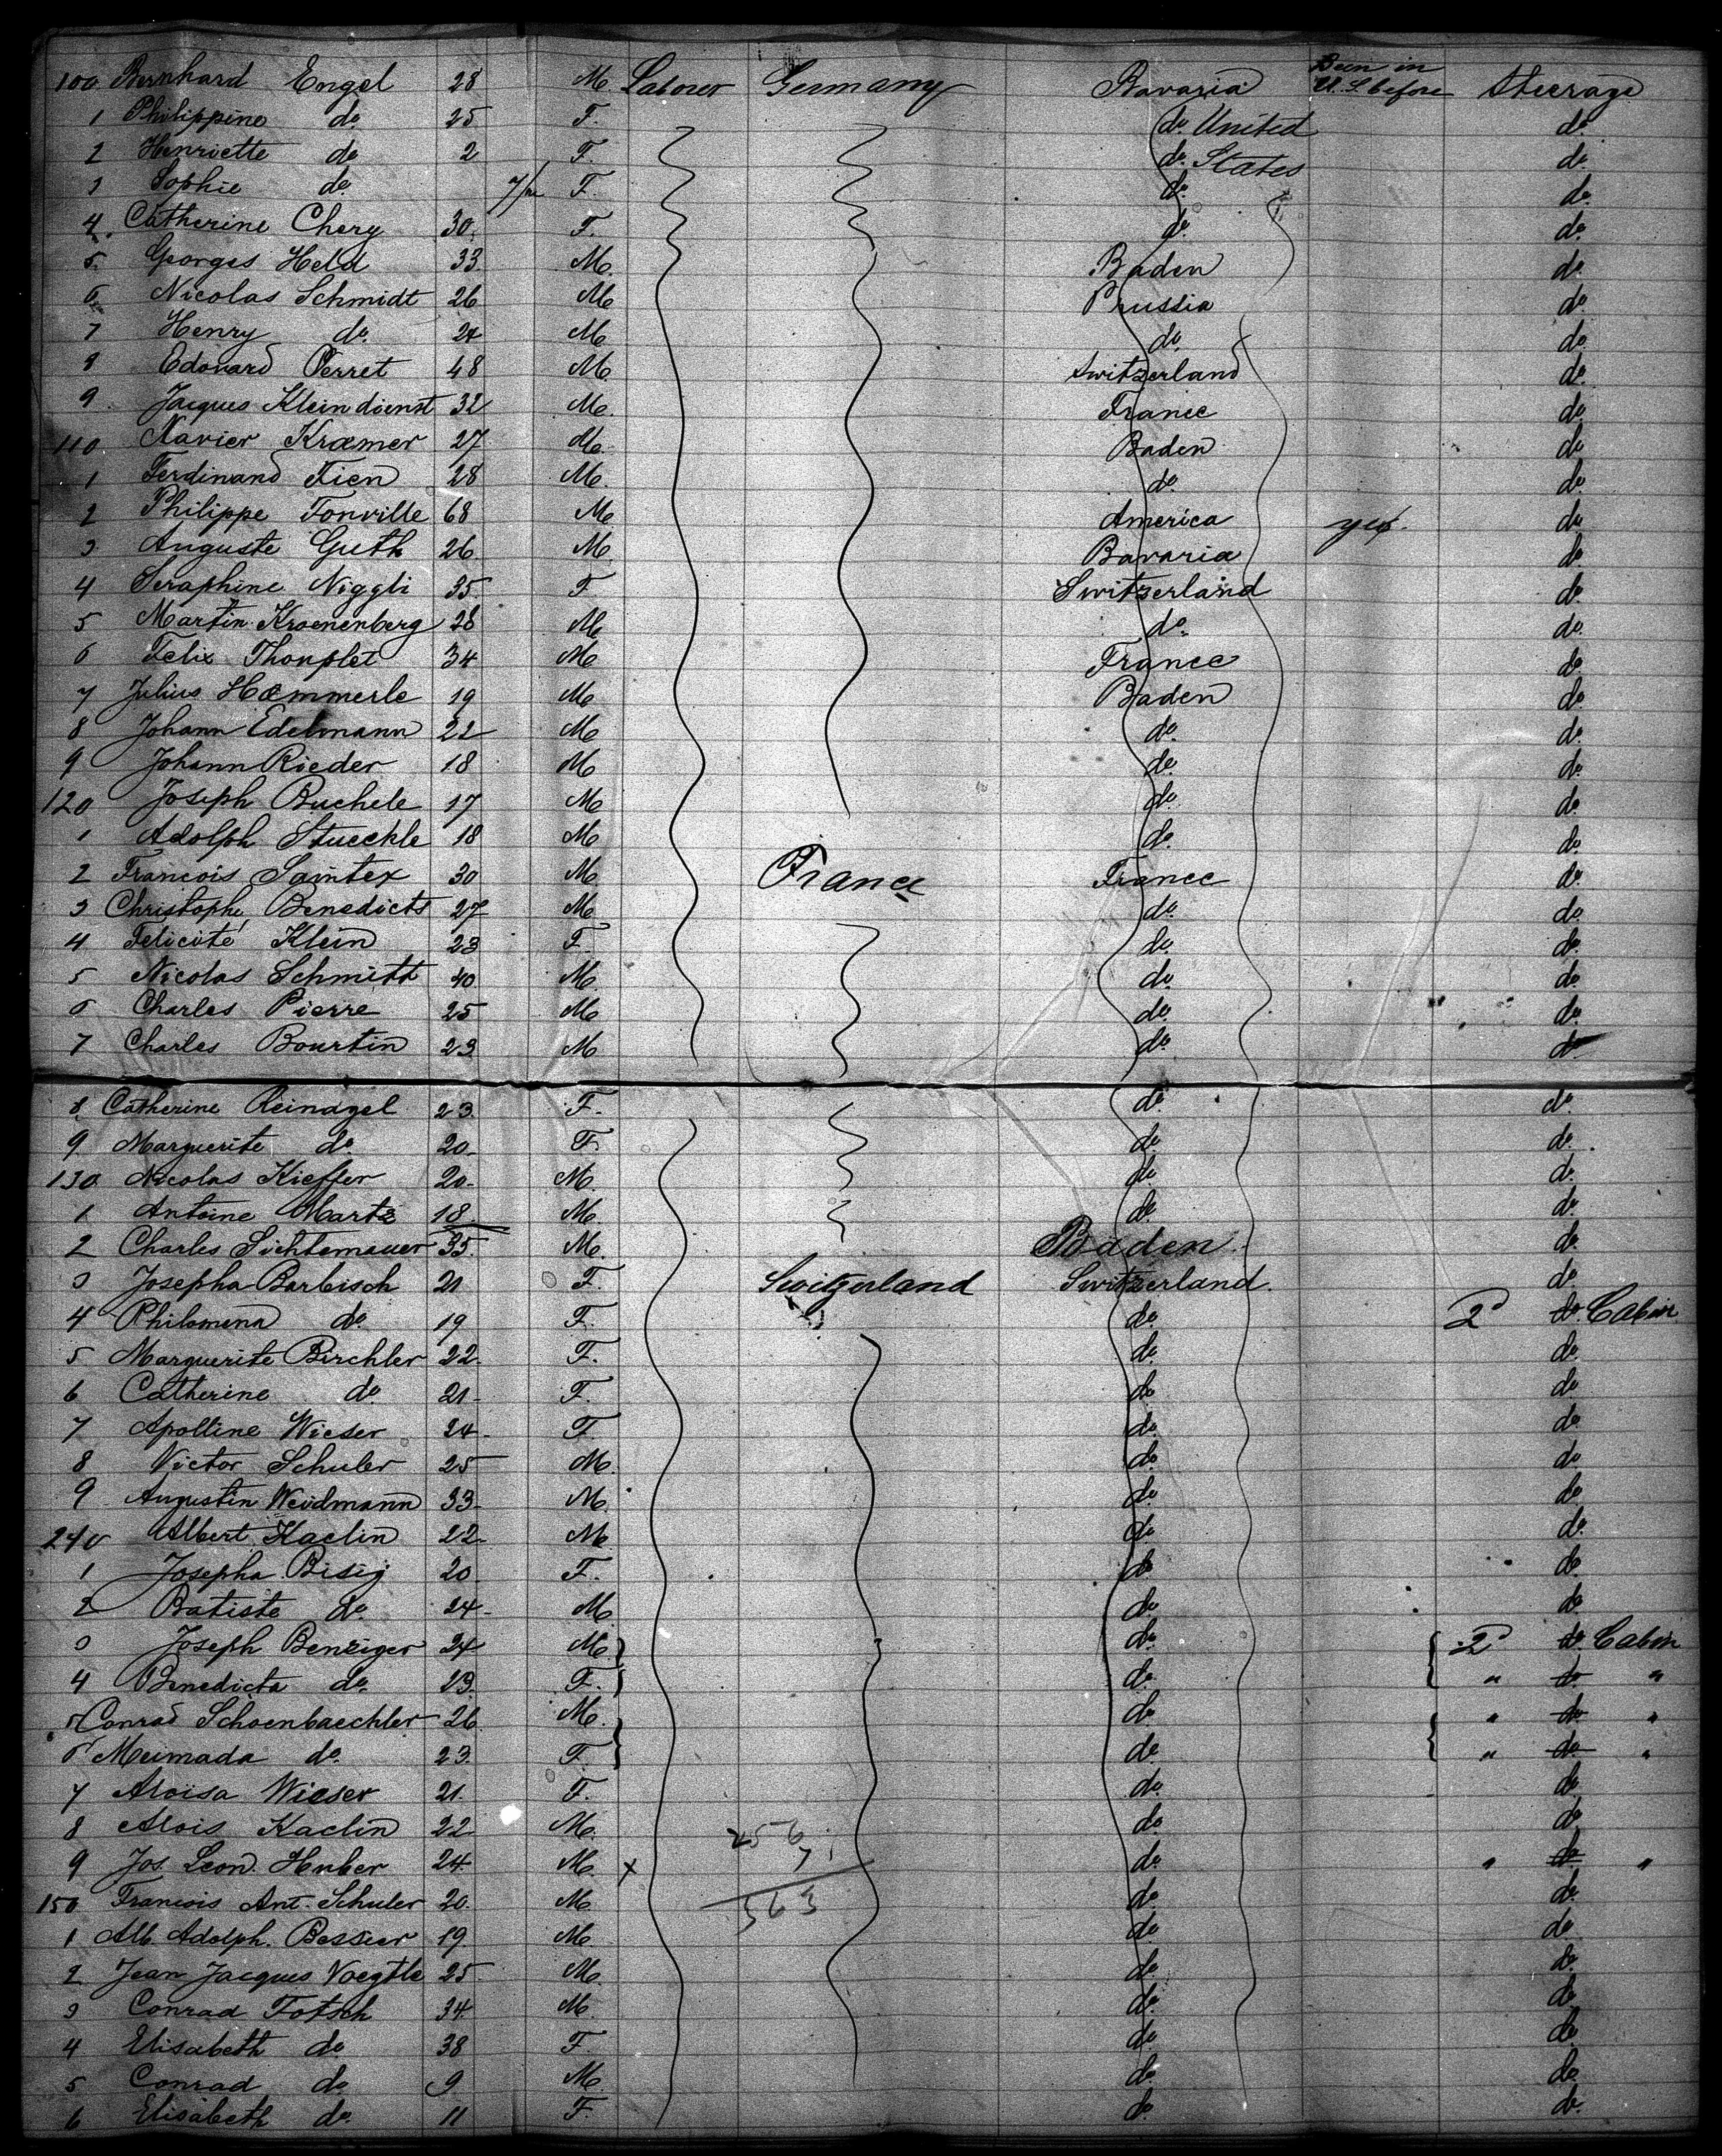 100 Bernhard Engel 28 M Laborer Germany Bavaria Been in U.S before Steerage
1 Philippine do. 25 F. do. United do.
2 Henriette do. 2 F. do. States do.
3 Sophie do. F. do. do.
4. Catherine Chery 30. F. do. do.
5. Georges Held 33. M. Baden do.
6. Nicolas Schmidt 26 M Prussia do.
7 Henry do. 24 M do. do.
8 Edouard Perret 48 M. Switzerland do.
9. Jacques Kleindienst 32 M. France do.
110 Xavier Kræmer 27 M. Baden do
1 Ferdinand Fien 28 M. do. do.
2 Philippe Tonville 68 M America yes. do
3. Auguste Guth 26. M. Bavaria do.
4 Seraphine Niggli 35. F Switzerland do.
5 Martin Kroenenberg 28 M do. do.
6 Felix Thouplet 34 M France do.
7 Julius Hæmmerle 19 M Baden do.
8 Johann Edelmann 22 M do. do.
9 Johann Rieder 18 M do. do.
120 Joseph Buchele 17 M do. do.
1 Adolph Stueckle 18 M do. do.
2 Francois Saintex 30 M. France France do.
3 Christophe Benedicts 27 M. do. do.
4 Felicité Klein 23 F. do. do.
5 Nicolas Schmitt 40. M. do. do.
6 Charles Pierre 25 M do. do.
7 Charles Bourtin 23. M do. do
8. Catherine Reinagel 23. F. do. do.
9 Marguerite do. 20. F. do. do.
130 Nicolas Kieffer 20. M. do. do.
1 Antoine Martz 18 M. do. do.
2 Charles Lichtemauer 35. M. Baden do.
3 Josepha Barbisch 21 F. Switzerland Switzerland. do.
4 Philomena do. 19 F. do. 2d do Cabin
5 Marguerite Birchler 22. F. do. do.
6 Catherine do. 21. F. do. do.
7 Apolline Wieser 24. F. do. do.
8 Victor Schuler 25 M. do. do
9 Augustin Weidmann 33. M. do. do.
240 Albert Kaclin 22. M do. do.
1 Josepha Bisig 20. F. do. do.
2 Batiste do. 24. M do. do.
3 Joseph Benziger 24 M. do. 2d do Cabin
4 Benedicta do. F. do. " do "
5 Conrad Schoenbaechler 26. M. do. " do "
6 Meimada do. 23. F. do. " do "
7 Aloisa Wieser 21. F. do. do.
8 Alois Kaclin 22. M. do. do.
9 Jos. Leon. Huber 24 M. x do. " do "
150 Francois Ant. Schuler 20. M. do. do.
363
1 Alb. Adolph. Bessier 19. M do. do.
2 Jean Jacques Voegtle 25. M. do. do.
3 Conrad Fotsch 34. M. do. do.
4 Elisabeth do. 38 F. do. do.
5 Conrad do. 9 M do. do.
6 Elisabeth do. 11 F. do. do.